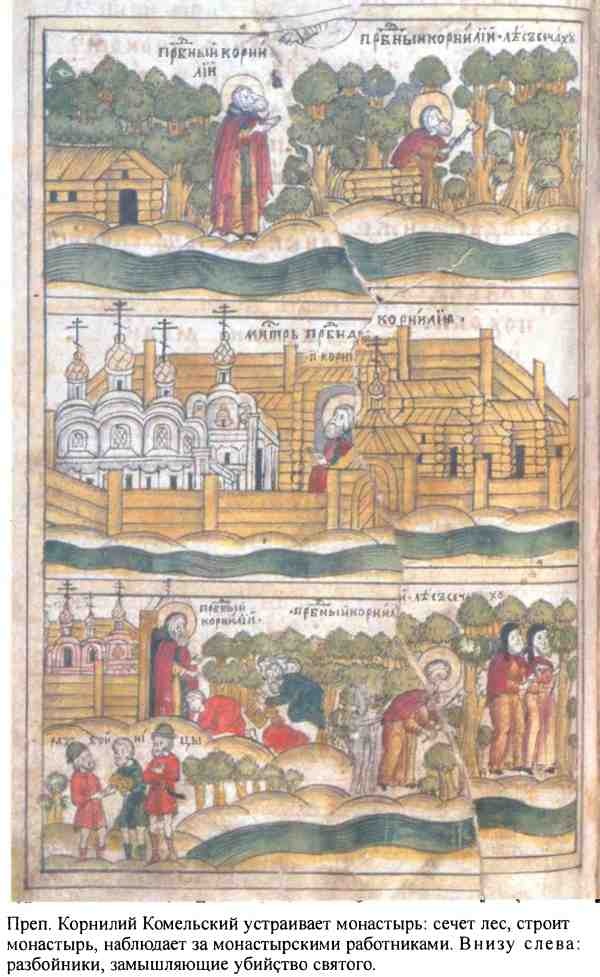 прⷣбный корни
лїй
прⷣбный корнилїй · лѣсъ сечахъ
корнилїя ·
п корни
прⷣбный
корнилїй ·
· прⷣбный корнил
й · лѣсъ сеч
ра бой ни цы
Преп. Корнилий Комельский устраивает монастырь: сечет лес, строит
монастырь, наблюдает за монастырскими работниками. Внизу слева:
разбойники, замышляющие убийство святого.